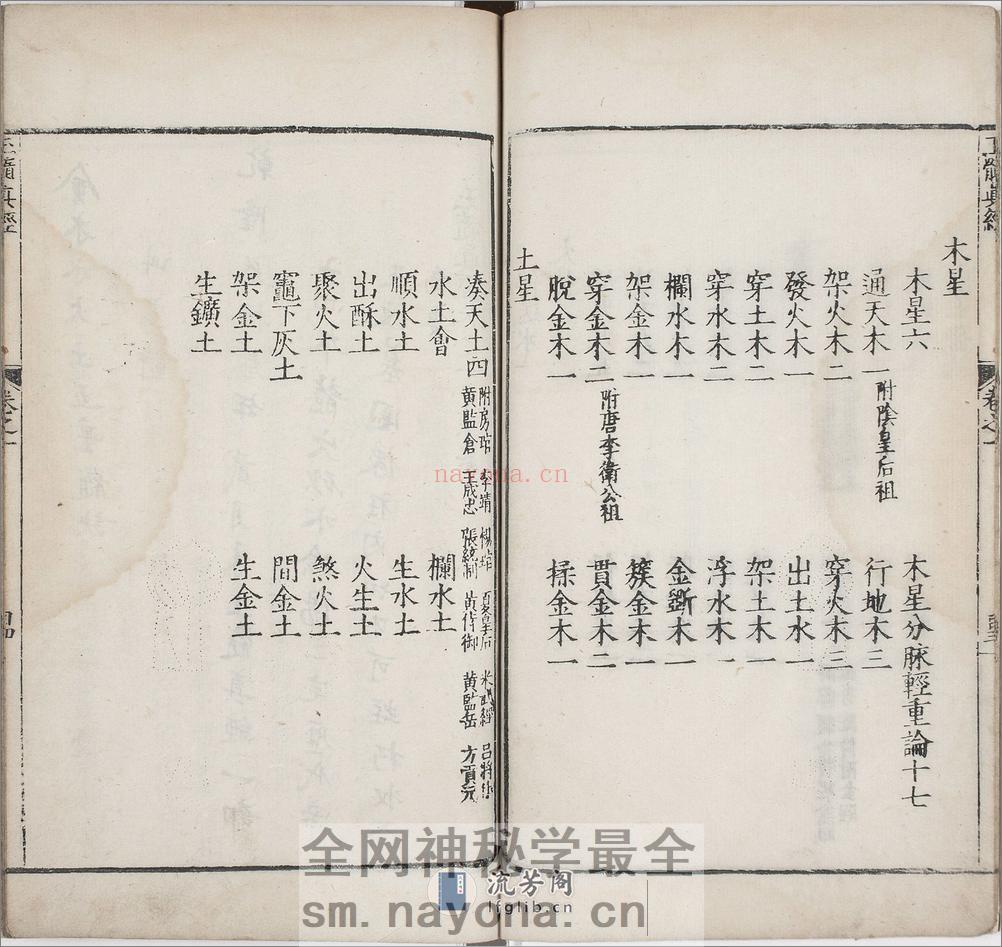 玉髓真經
卷之一
木星
木星六
木星分脉輕重論十七
通天木一附陰皇后祖
行地木三
架火木二
穿火木三
發火木一
出土水一
穿土木二
架土木一
穿水木二
浮水木一
欄水木一
金斷木一
架金木一
簇金木一
穿金木二附唐李衛公祖
貫金木二
脫金木一
揉金木一
土星
湊天土四
附房琯 李靖
黃監倉 王成忠
張統制 黃侍御 黃監岳 方貢元
水土會
欄水土
順水土
生水土
出酥土
火生土
聚火土
煞火土
竈下灰土
間金土
架金土
生金土
生鑛土
玉髓真經
卷之一
nayona.cn
全网神秘学最全
流芳阁
lfglib.cn
sm.nayona.cn